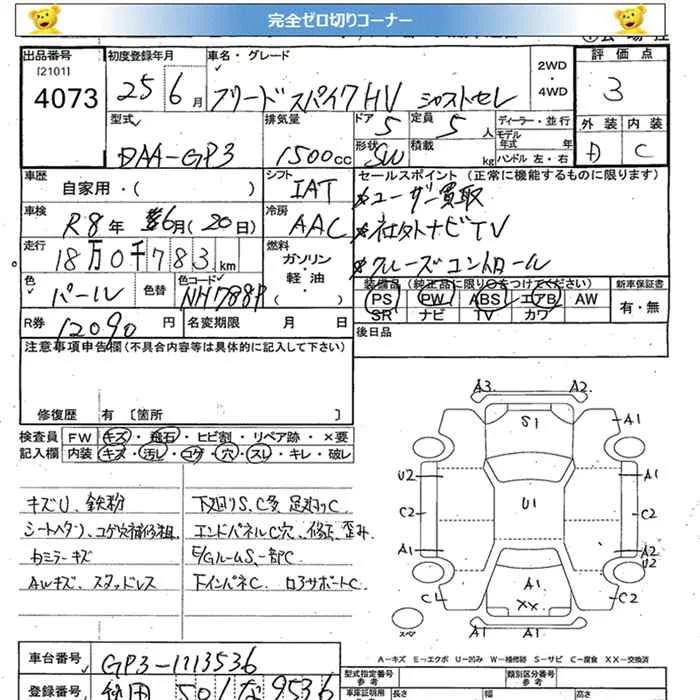 完全ゼロ切りコーナー
出品番号 初度登録年月 車名・グレード 2WD・4WD 評価点
[2101]
4073 25 6月 フリードスパイクHV ジャストセレ 3
外装 内装
D C
型式 排気量 ドア 定員 ディーラー・並行
DAA-GP3 1500cc 5 5人 モデル年式 年
形状 積載 kg ハンドル 左・右
SW
車歴 シフト セールスポイント(正常に機能するものに限ります)
自家用・( ) IAT ユーザー買取
車検 冷房 社外ナビTV
R8年 6月(20日) AAC クルーズコントロール
走行 燃料
18万0千783km ガソリン・軽油・( )
色 色替 色コード
パール NH788P
装備品(純正品に限り○をつけてください) 新車保証書
PS PW ABS エアB AW 有・無
SR ナビ TV カワ
R券 12090円 名変期限 月 日 後日品
注意事項申告欄(不具合内容等は具体的に記入して下さい)
修復歴 有〔箇所 〕
検査員記入欄 FW キズ・飛石・ヒビ割・リペア跡・×要
内装 キズ・汚し・コゲ・穴・スレ・キレ・破レ
キズU、鉄粉 下廻りS、C多 足廻りC
シートヘタリ、コゲ穴補修粗 エンドパネルC穴、修正、歪み
カミラーキズ E/GルームS、一部C
AWキズ、スタッドレス 下インパネC ロアサポートC
A3 A2
S1 A1
U2 A1
C2 U1 C2
A1 A2
U2
C1 A1 C2
XX
スペア A1 A1
A-キズ E-エクボ U-凹み W-補修跡 S-サビ C-腐食 XX-交換済
車台番号 GP3-1113536
型式指定番号 参考 類別区分番号 参考
登録番号 秋田 501 な 9536
車庫証明用 参考 長さ 幅 高さ